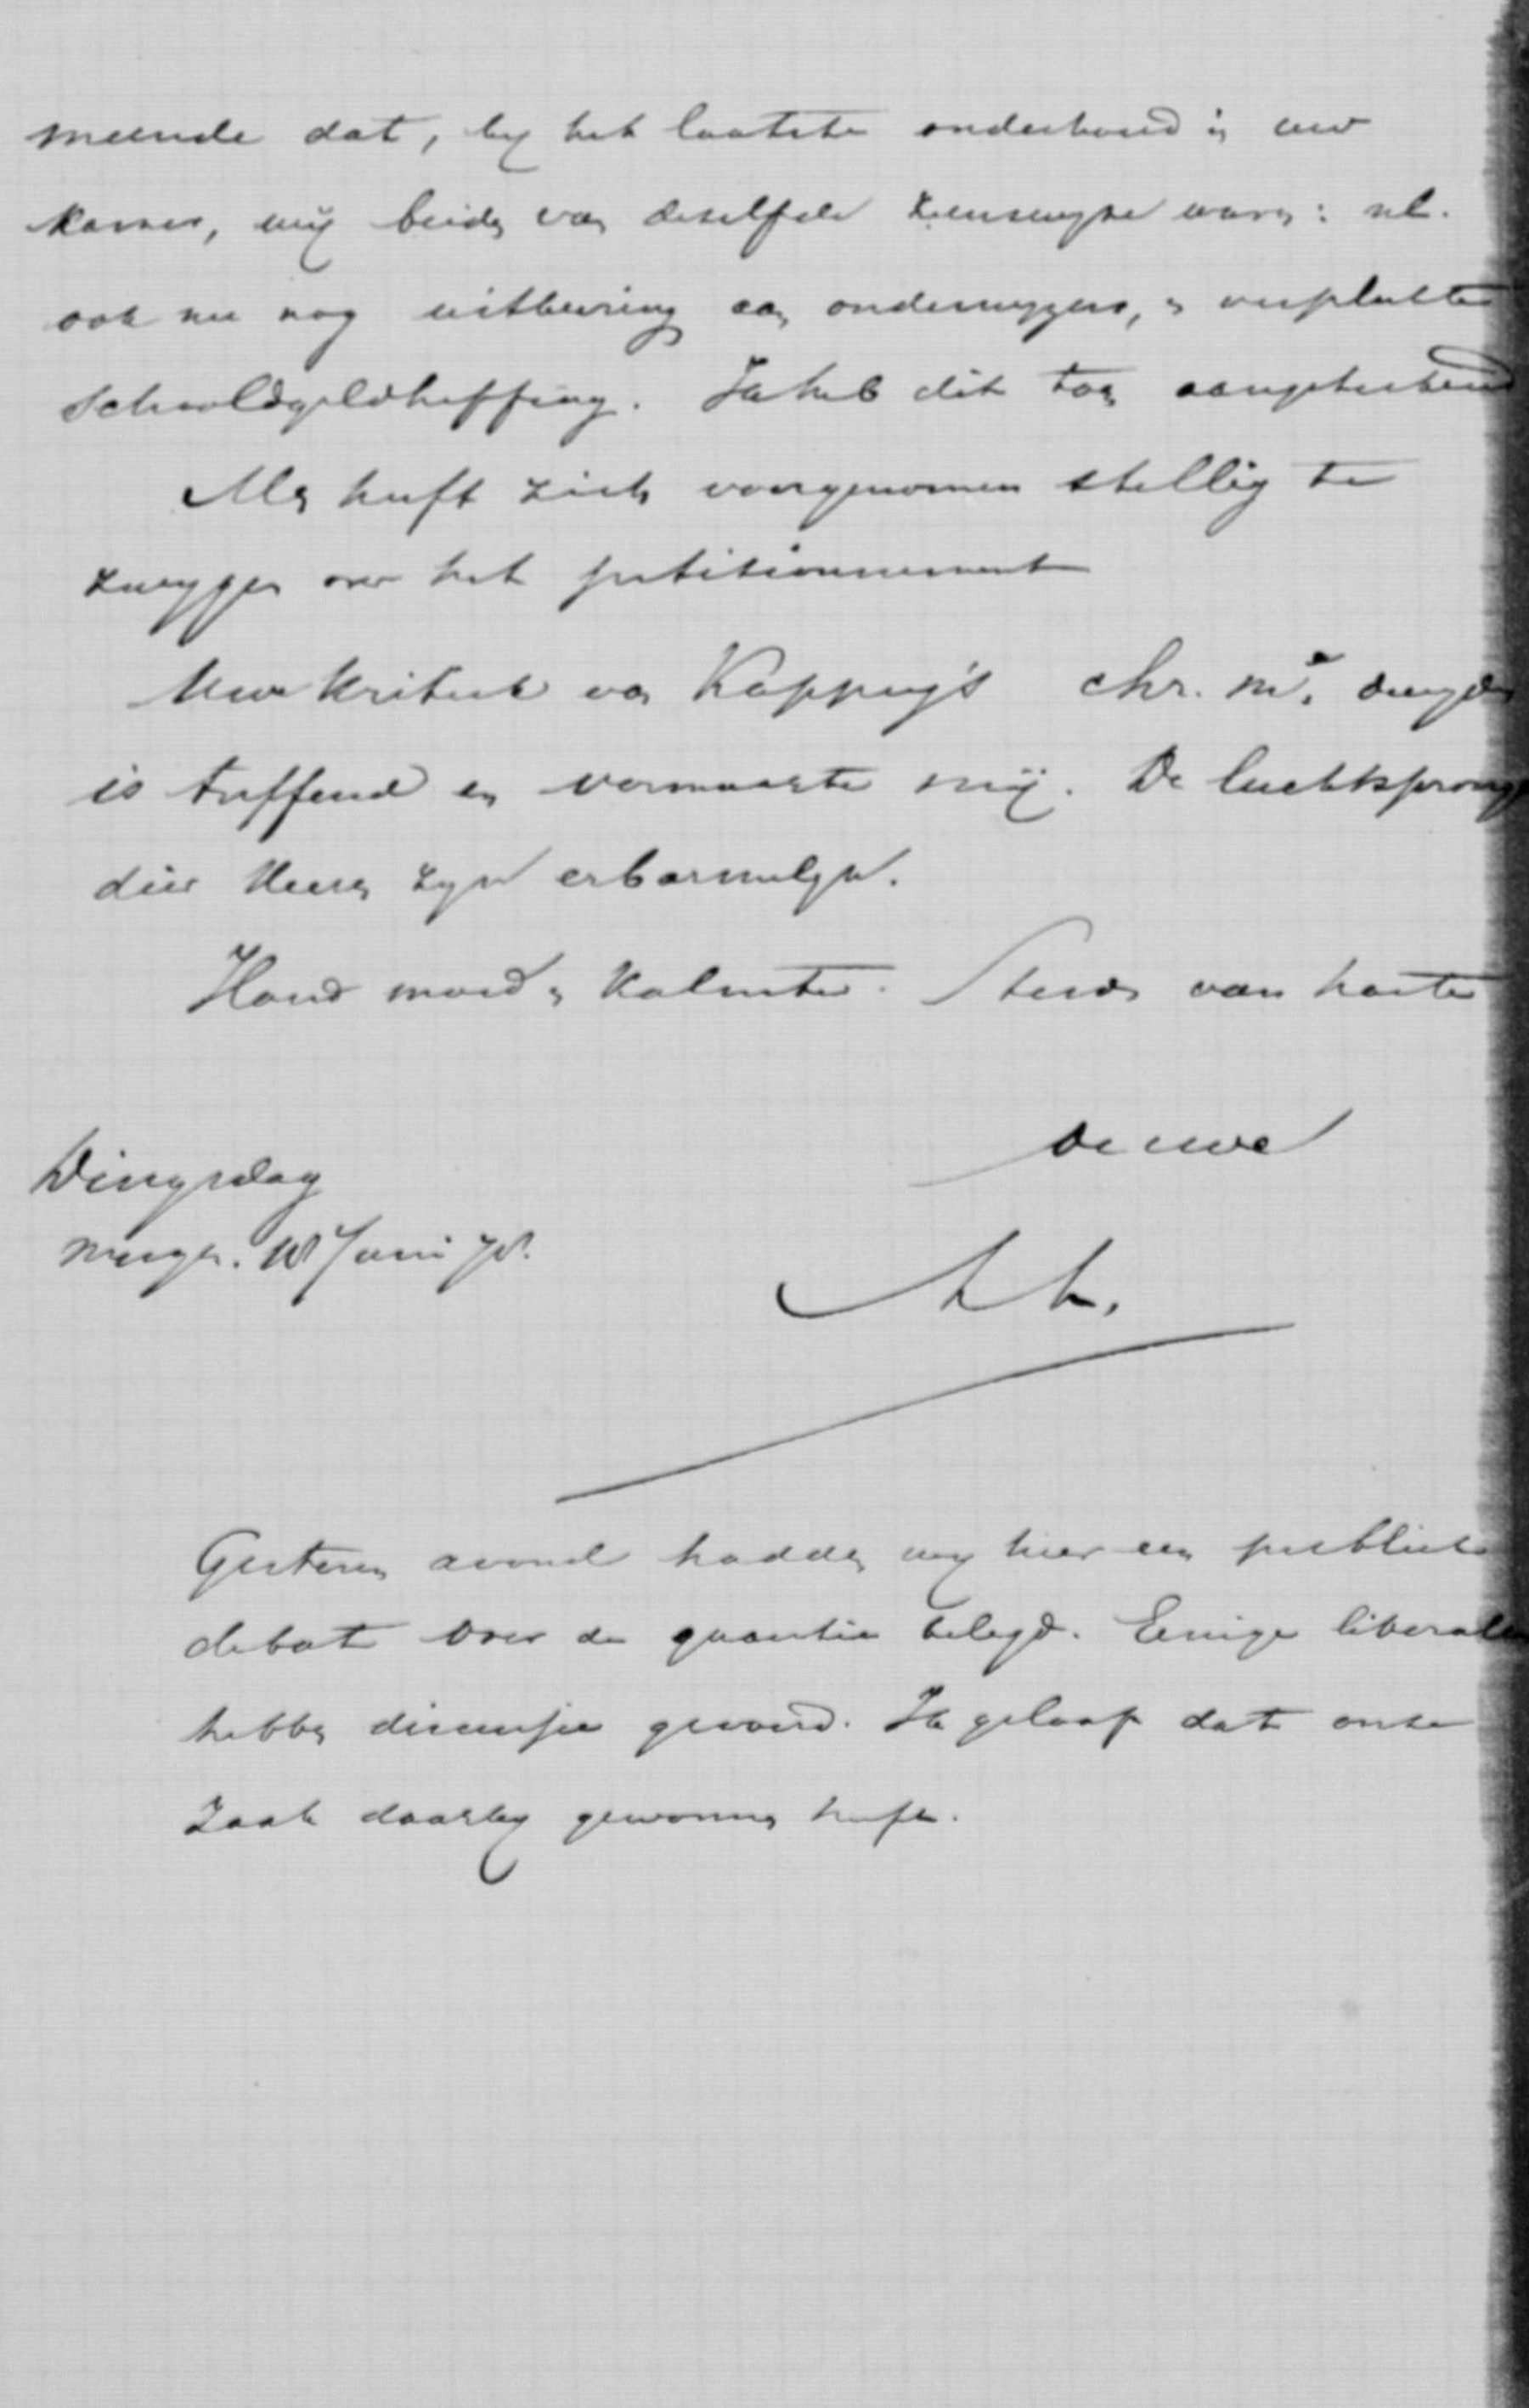 meende dat, by het laatste onderhoud in uw
kamer, wij beiden van dezelfde zienswyze waren: nl.
ook nu nog uitkeering aan onderwyzers, en verplichte
Schoolgeldheffing. Ik heb dit toen aangeteekend
Men heeft zich voorgenomen stellig te
zwygen over het petitionnement
Uwe kritiek van Kappeyne's chr. en deugden
is treffend en vermaakte mij. De luchtsprongen
dier Heeren zyn erbarmelyk.
Houd moed en kalmte. Steeds van harte
de uwe
Dingsdag
morgen. 18 Juni 78.
Gisteren avond hadden wy hier een publiek
debat over de quaestie belegd. Eenige liberalen
hebben discussie gevoerd. Ik geloof dat onze
Zaak daarby gewonnen heeft.